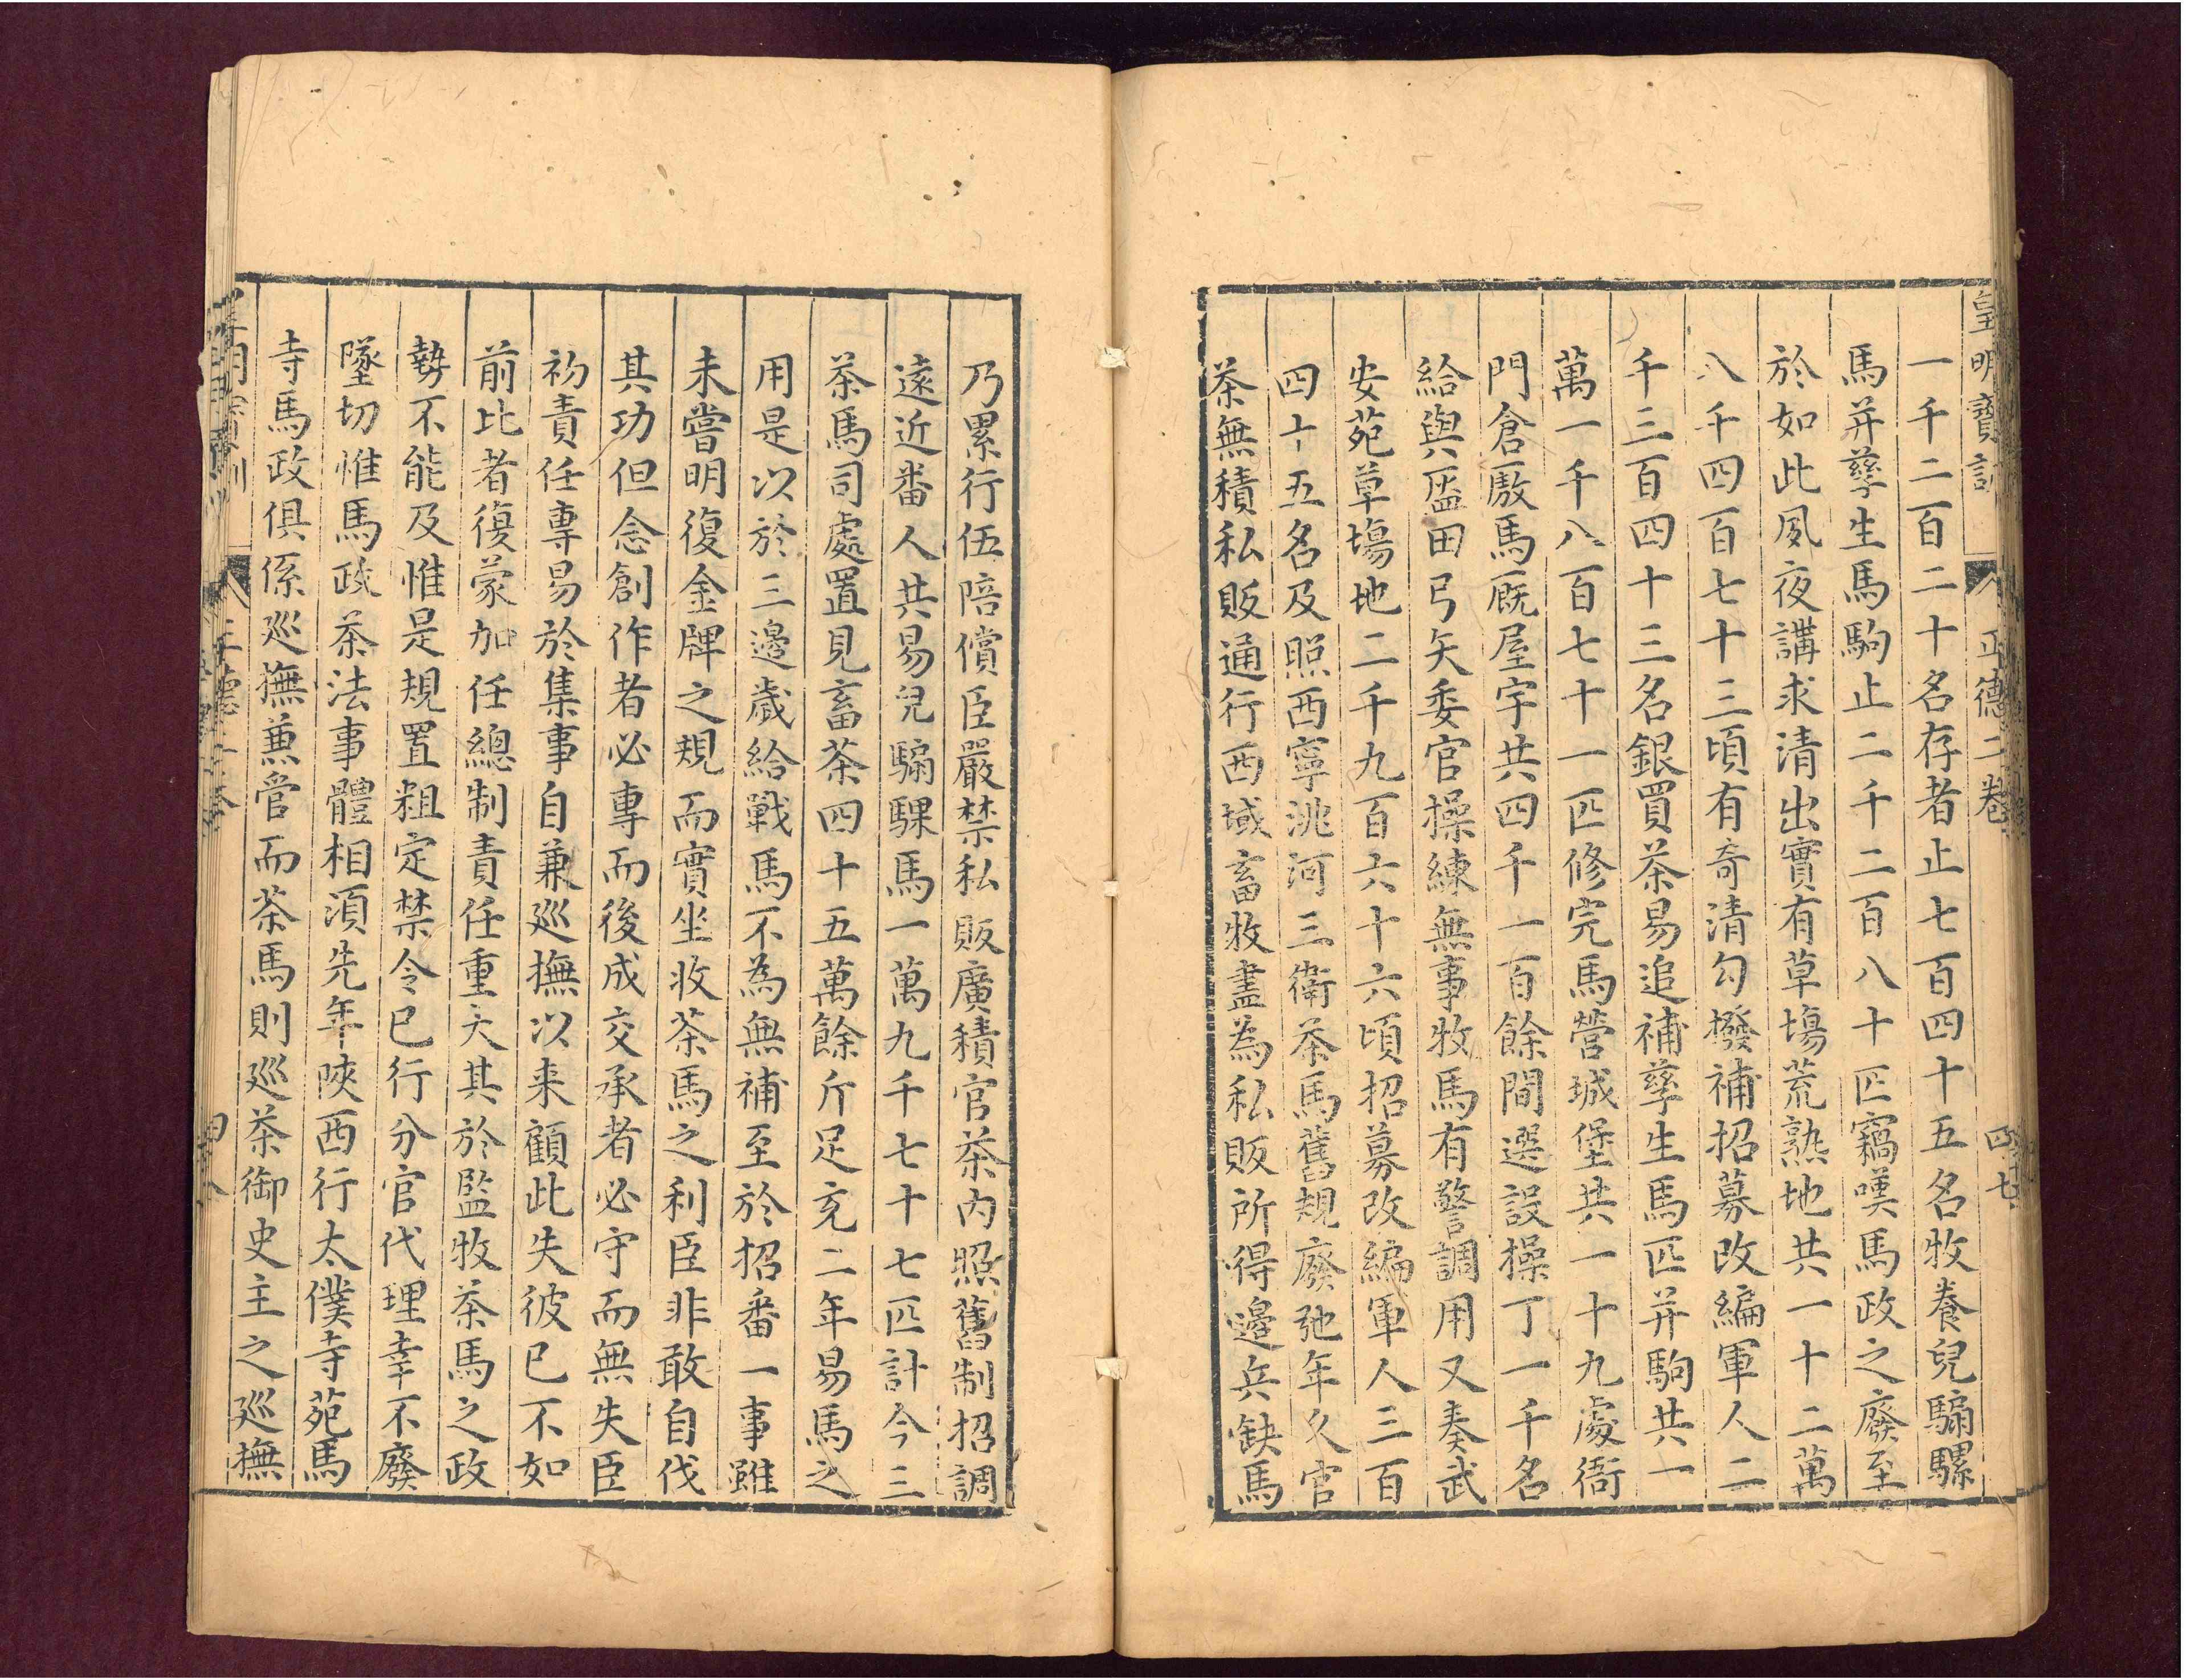 皇明寶訓 正德二卷 四十七
一千二百二十名存者止七百四十五名牧養兒騸騾
馬并孳生馬駒止二千二百八十匹竊嘆馬政之廢至
於如此夙夜講求清出實有草塲荒熟地共一十二萬
八千四百七十三頃有奇清勾撥補招募改編軍人二
千三百四十三名銀買茶易追補孳生馬匹并駒共一
萬一千八百七十一匹修完馬營城堡共一十九處衙
門倉廒馬厩屋宇共四千一百餘間選設操丁一千名
給與盔田弓矢委官操練無事牧馬有警調用又奏武
安苑草塲地二千九百六十六頃招募改編軍人三百
四十五名及照西寧洮河三衛茶馬舊規廢弛年久官
茶無積私販通行西域畜牧盡為私販所得邊兵缺馬
乃累行伍陪償臣嚴禁私販廣積官茶內照舊制招調
遠近番人共易兒騸騍馬一萬九千七十七匹計今三
茶馬司處置見畜茶四十五萬餘斤足充二年易馬之
用是以於三邊歲給戰馬不為無補至於招番一事雖
未嘗明復金牌之規而實坐收茶馬之利臣非敢自伐
其功但念創作者必專而後成交承者必守而無失臣
初責任專易於集事自兼廵撫以来顧此失彼已不如
前比者復蒙加任總制責任重大其於監牧茶馬之政
勢不能及惟是規置粗定禁令已行分官代理幸不廢
墜切惟馬政茶法事體相湏先年陝西行太僕寺苑馬
寺馬政俱係廵撫兼管而茶馬則廵茶御史主之廵撫